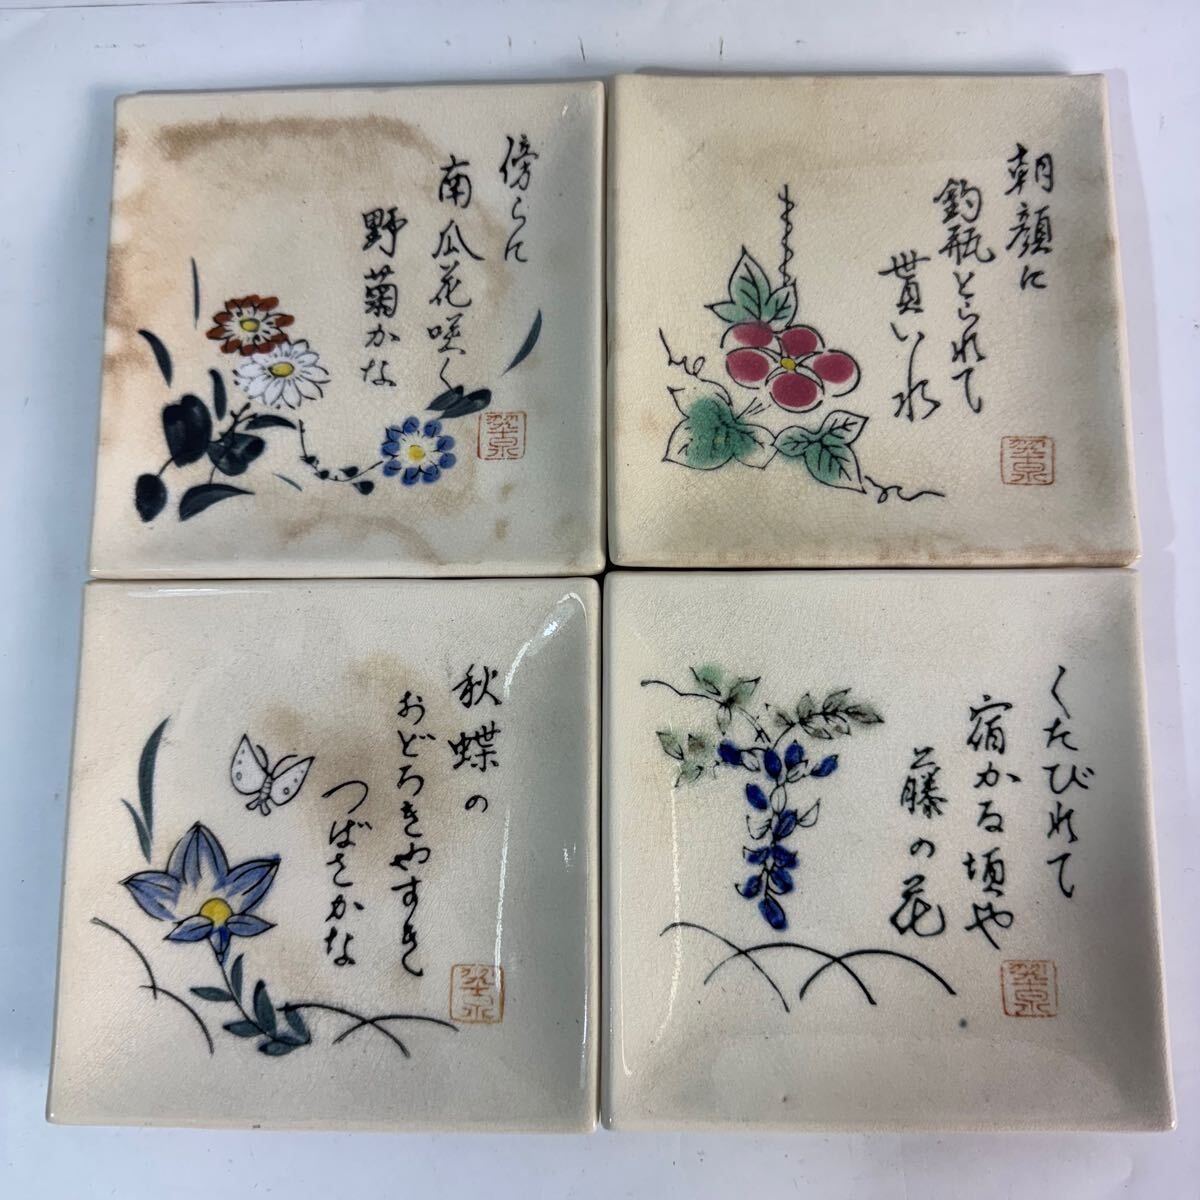 傍らに
南瓜花咲く
野菊かな
朝顔に
釣瓶とられて
貰い水
秋蝶の
おどろきやすき
つばさかな
くたびれて
宿かる頃や
藤の花